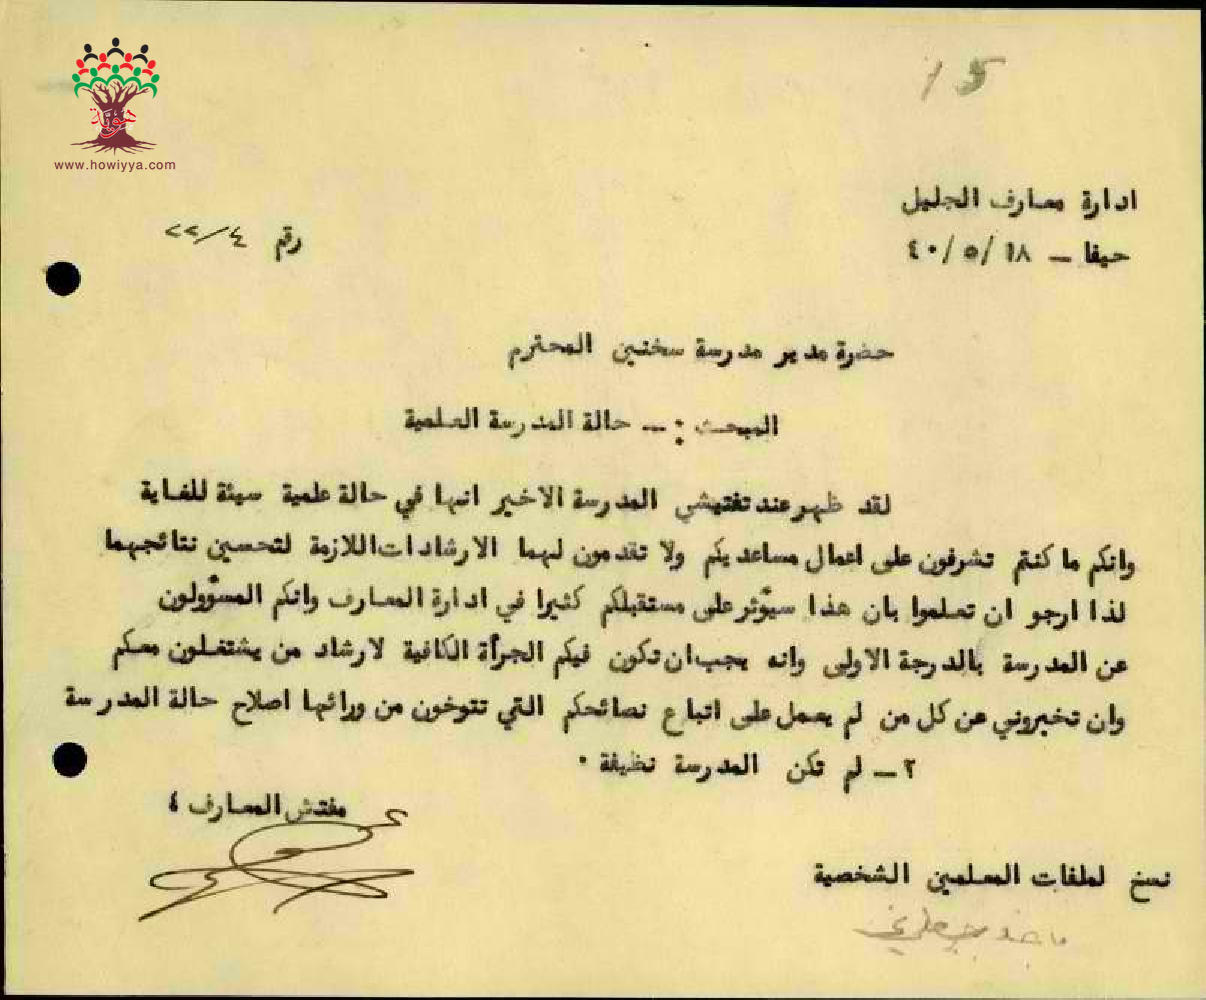 هويّة
www.howiyya.com
15
ادارة معارف الجليل
رقم ٢٢/٤
حيفا – ١٨/٥/٤٠
حضرة مدير مدرسة سخنين المحترم
المبحث :– حالة المدرسة العلمية
لقد ظهر عند تفتيشي المدرسة الاخير انها في حالة علمية سيئة للغاية
وانكم ما كنتم تشرفون على اعمال مساعديكم ولا تقدمون لهما الارشادات اللازمة لتحسين نتائجهما
لذا ارجو ان تعلموا بان هذا سيؤثر على مستقبلكم كثيرا في ادارة المعارف وانكم المسؤولون
عن المدرسة بالدرجة الاولى وانه يجب ان تكون فيكم الجرأة الكافية لارشاد من يشتغلون معكم
وان تخبروني عن كل من لم يعمل على اتباع نصائحكم التي تتوخون من ورائها اصلاح حالة المدرسة
٢ – لم تكن المدرسة نظيفة ٠
مفتش المعارف ٤
نسخ لملفات المعلمين الشخصية